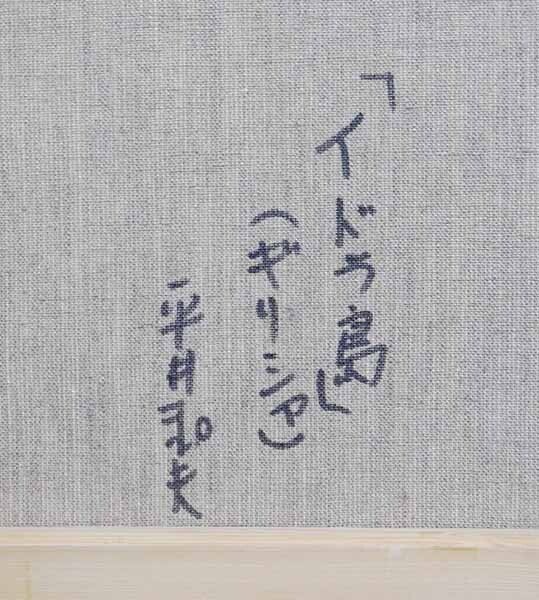 「イドラ島」
(ギリシア)
平井